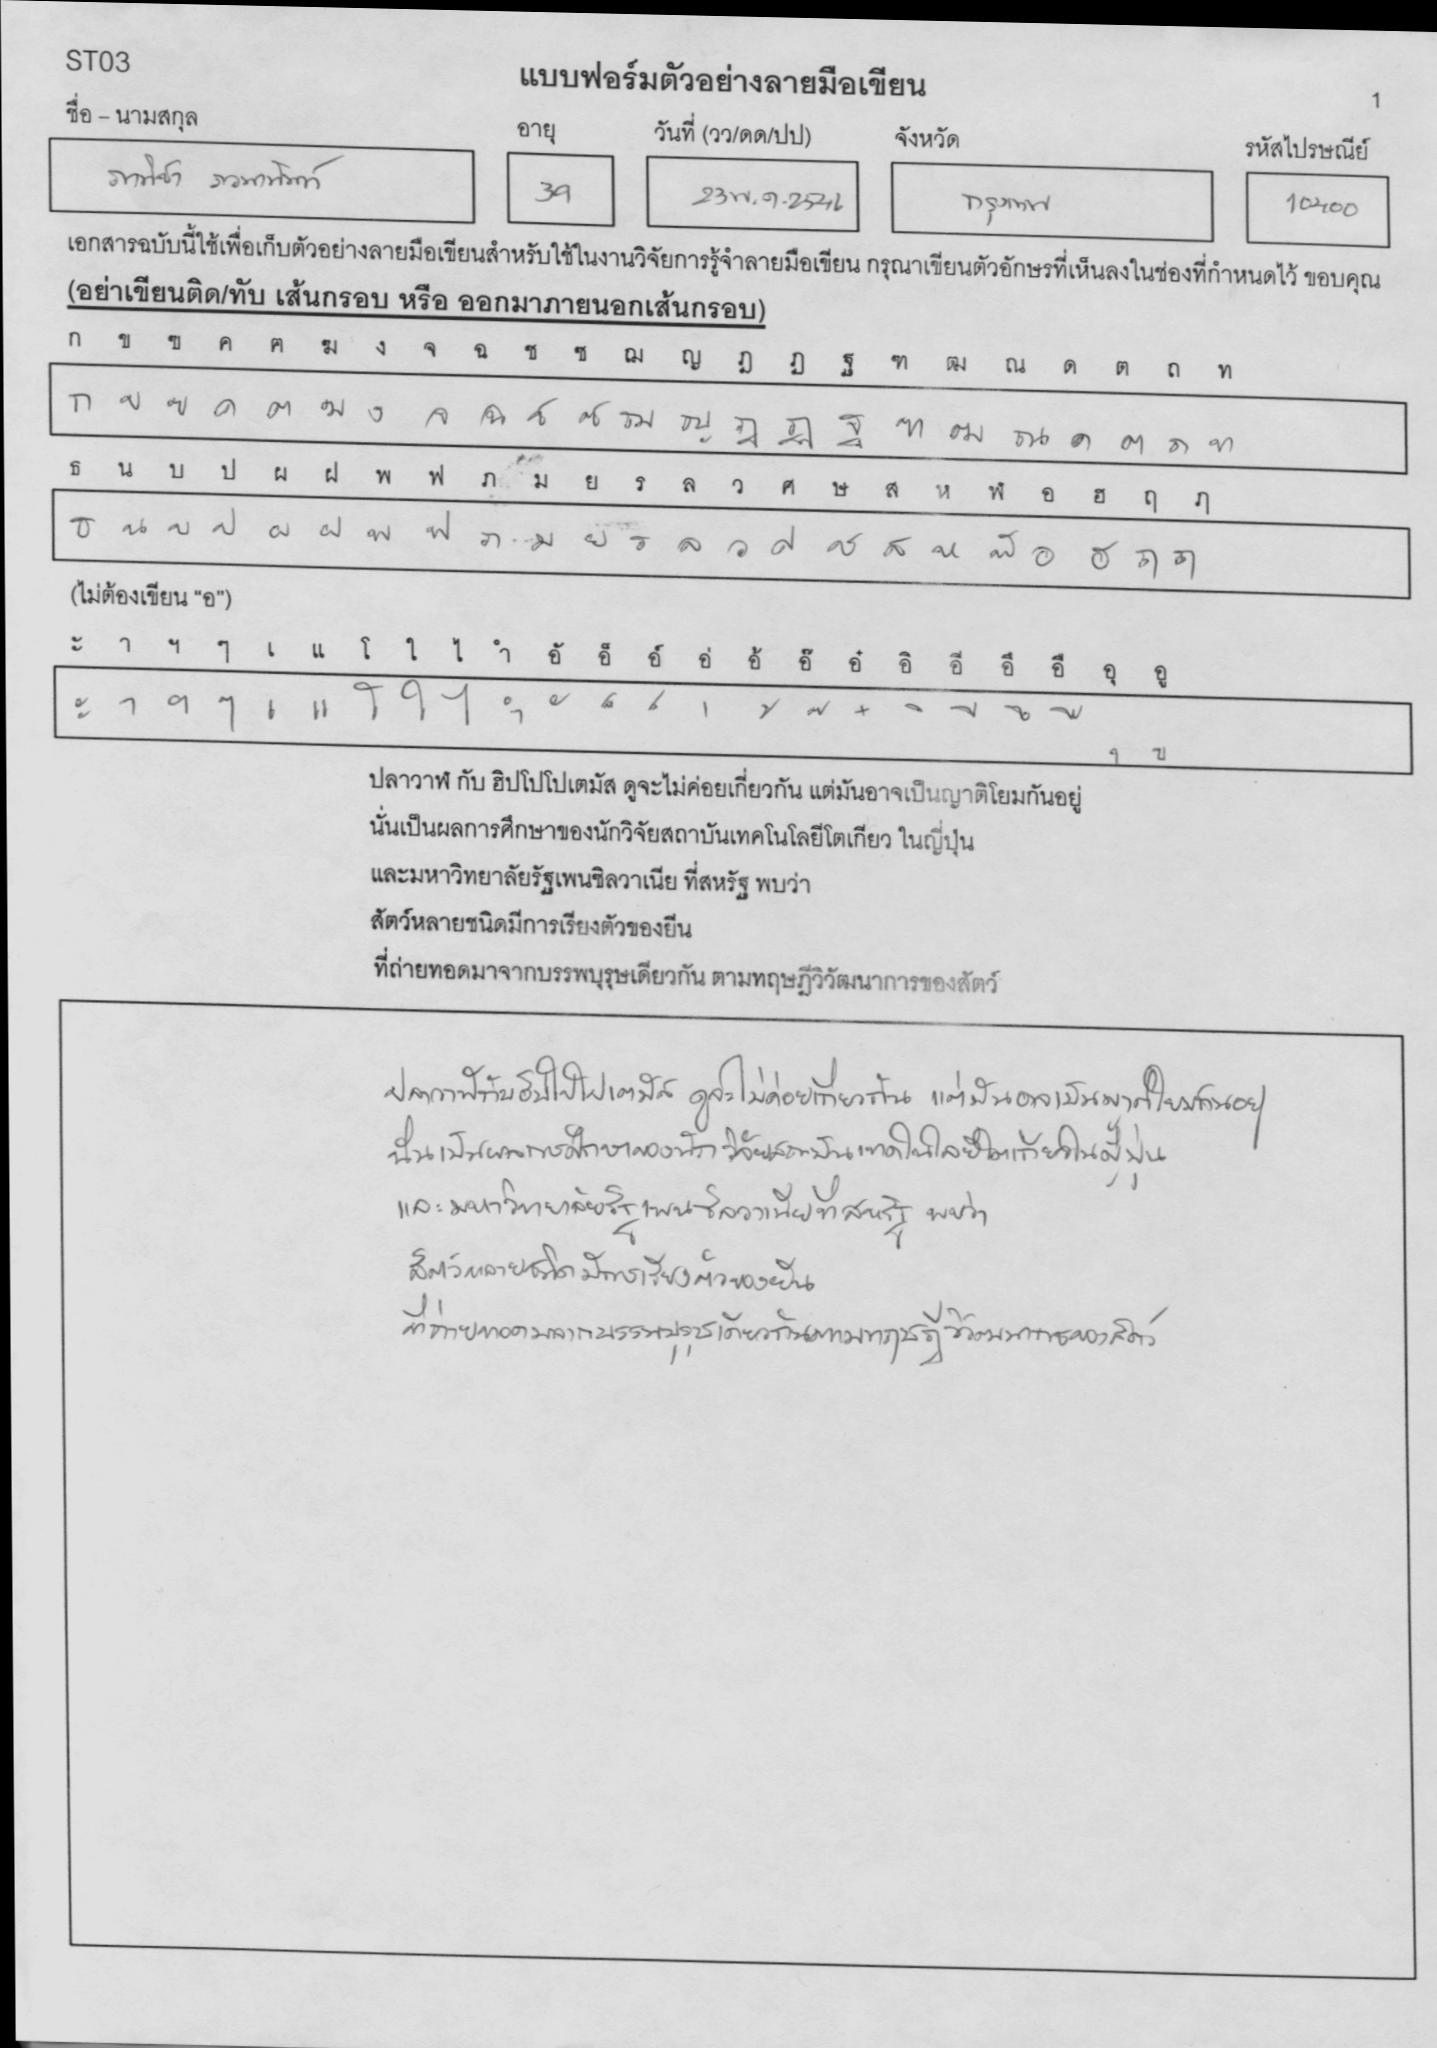 ST03
แบบฟอร์มตัวอย่างลายมือเขียน
1
ชื่อ – นามสกุล อายุ วันที่ (วว/ดด/ปป) จังหวัด รหัสไปรษณีย์
39 23 พ.ค. 2546 กรุงเทพ 10400
เอกสารฉบับนี้ใช้เพื่อเก็บตัวอย่างลายมือเขียนสำหรับใช้ในงานวิจัยการรู้จำลายมือเขียน กรุณาเขียนตัวอักษรที่เห็นลงในช่องที่กำหนดไว้ ขอบคุณ
(อย่าเขียนติด/ทับ เส้นกรอบ หรือ ออกมาภายนอกเส้นกรอบ)
ก ข ฃ ค ฅ ฆ ง จ ฉ ช ซ ฌ ญ ฎ ฏ ฐ ฑ ฒ ณ ด ต ถ ท
ก ข ฃ ค ฅ ฆ ง จ ฉ ช ซ ฌ ญ ฎ ฏ ฐ ฑ ฒ ณ ด ต ถ ท
ธ น บ ป ผ ฝ พ ฟ ภ ม ย ร ล ว ศ ษ ส ห ฬ อ ฮ ฤ ฦ
ธ น บ ป ผ ฝ พ ฟ ภ ม ย ร ล ว ศ ษ ส ห ฬ อ ฮ ฤ ฦ
(ไม่ต้องเขียน "อ")
ะ า ฯ ๆ เ แ โ ใ ไ ำ อั อ็ อ์ อ่ อ้ อ๊ อ๋ อิ อี อึ อื อุ อู
ะ า ฯ ๆ เ แ โ ใ ไ ำ ั ็ ์ ่ ้ ๊ ๋ ิ ี ึ ื ุ ู
ปลาวาฬ กับ ฮิปโปโปเตมัส ดูจะไม่ค่อยเกี่ยวกัน แต่มันอาจเป็นญาติโยมกันอยู่
นั่นเป็นผลการศึกษาของนักวิจัยสถาบันเทคโนโลยีโตเกียว ในญี่ปุ่น
และมหาวิทยาลัยรัฐเพนซิลวาเนีย ที่สหรัฐ พบว่า
สัตว์หลายชนิดมีการเรียงตัวของยีน
ที่ถ่ายทอดมาจากบรรพบุรุษเดียวกัน ตามทฤษฎีวิวัฒนาการของสัตว์
ปลาวาฬกับฮิปโปโปเตมัส ดูจะไม่ค่อยเกี่ยวกัน แต่มันอาจเป็นญาติโยมกันอยู่
นั่นเป็นผลการศึกษาของนักวิจัยสถาบันเทคโนโลยีโตเกียวในญี่ปุ่น
และมหาวิทยาลัยรัฐเพนซิลวาเนียที่สหรัฐ พบว่า
สัตว์หลายชนิดมีการเรียงตัวของยีน
ที่ถ่ายทอดมาจากบรรพบุรุษเดียวกันตามทฤษฎีวิวัฒนาการของสัตว์